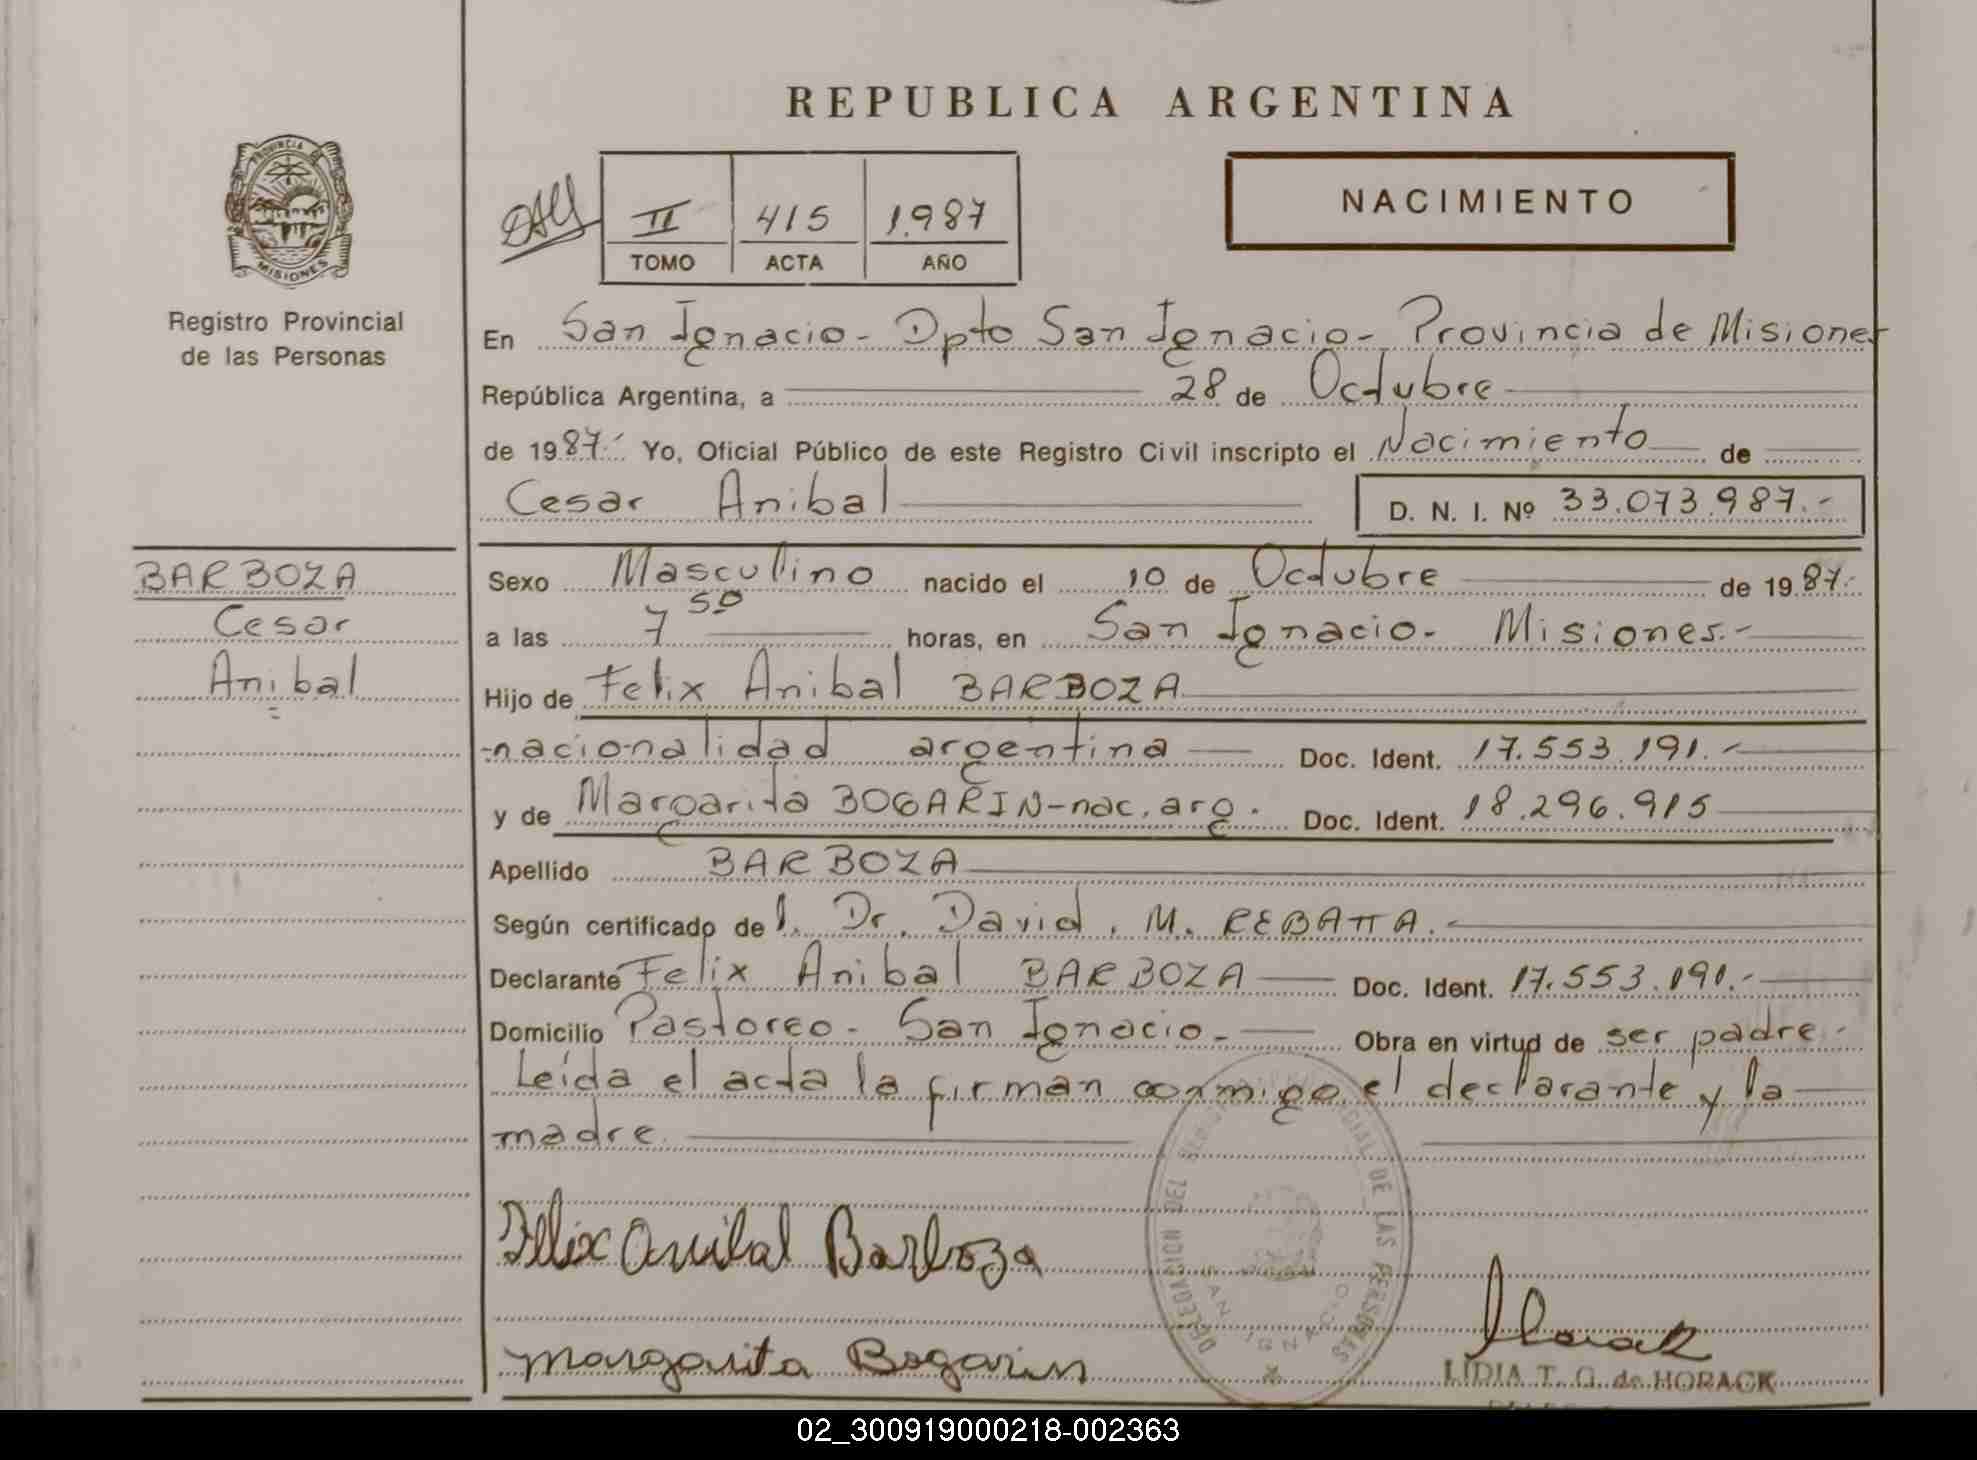 REPUBLICA ARGENTINA
PROVINCIA DE
MISIONES
Registro Provincial
de las Personas
II 415 1.987
TOMO ACTA AÑO
NACIMIENTO
En San Ignacio - Dpto San Ignacio - Provincia de Misiones
República Argentina, a 28 de Octubre
de 1987.- Yo, Oficial Público de este Registro Civil inscripto el Nacimiento de
Cesar Anibal D. N. I. Nº 33.073.987.-
BARBOZA
Cesar
Anibal
Sexo Masculino nacido el 10 de Octubre de 1987.-
a las 7 50 horas, en San Ignacio - Misiones.-
Hijo de Felix Anibal BARBOZA
-nacionalidad argentina Doc. Ident. 17.553.191.-
y de Margarita BOGARIN-nac. arg. Doc. Ident. 18.296.915
Apellido BARBOZA
Según certificado de l. Dr. David. M. REBATTA.-
Declarante Felix Anibal BARBOZA Doc. Ident. 17.553.191.-
Domicilio Pastoreo - San Ignacio - Obra en virtud de ser padre -
Leída el acta la firman conmigo el declarante y la
madre.
Felix Anibal Barboza
Margarita Bogarin
DELEGACION DEL DE LAS PERSONAS
SAN IGNACIO
Horack
LIDIA T. G. de HORACK
02_300919000218-002363